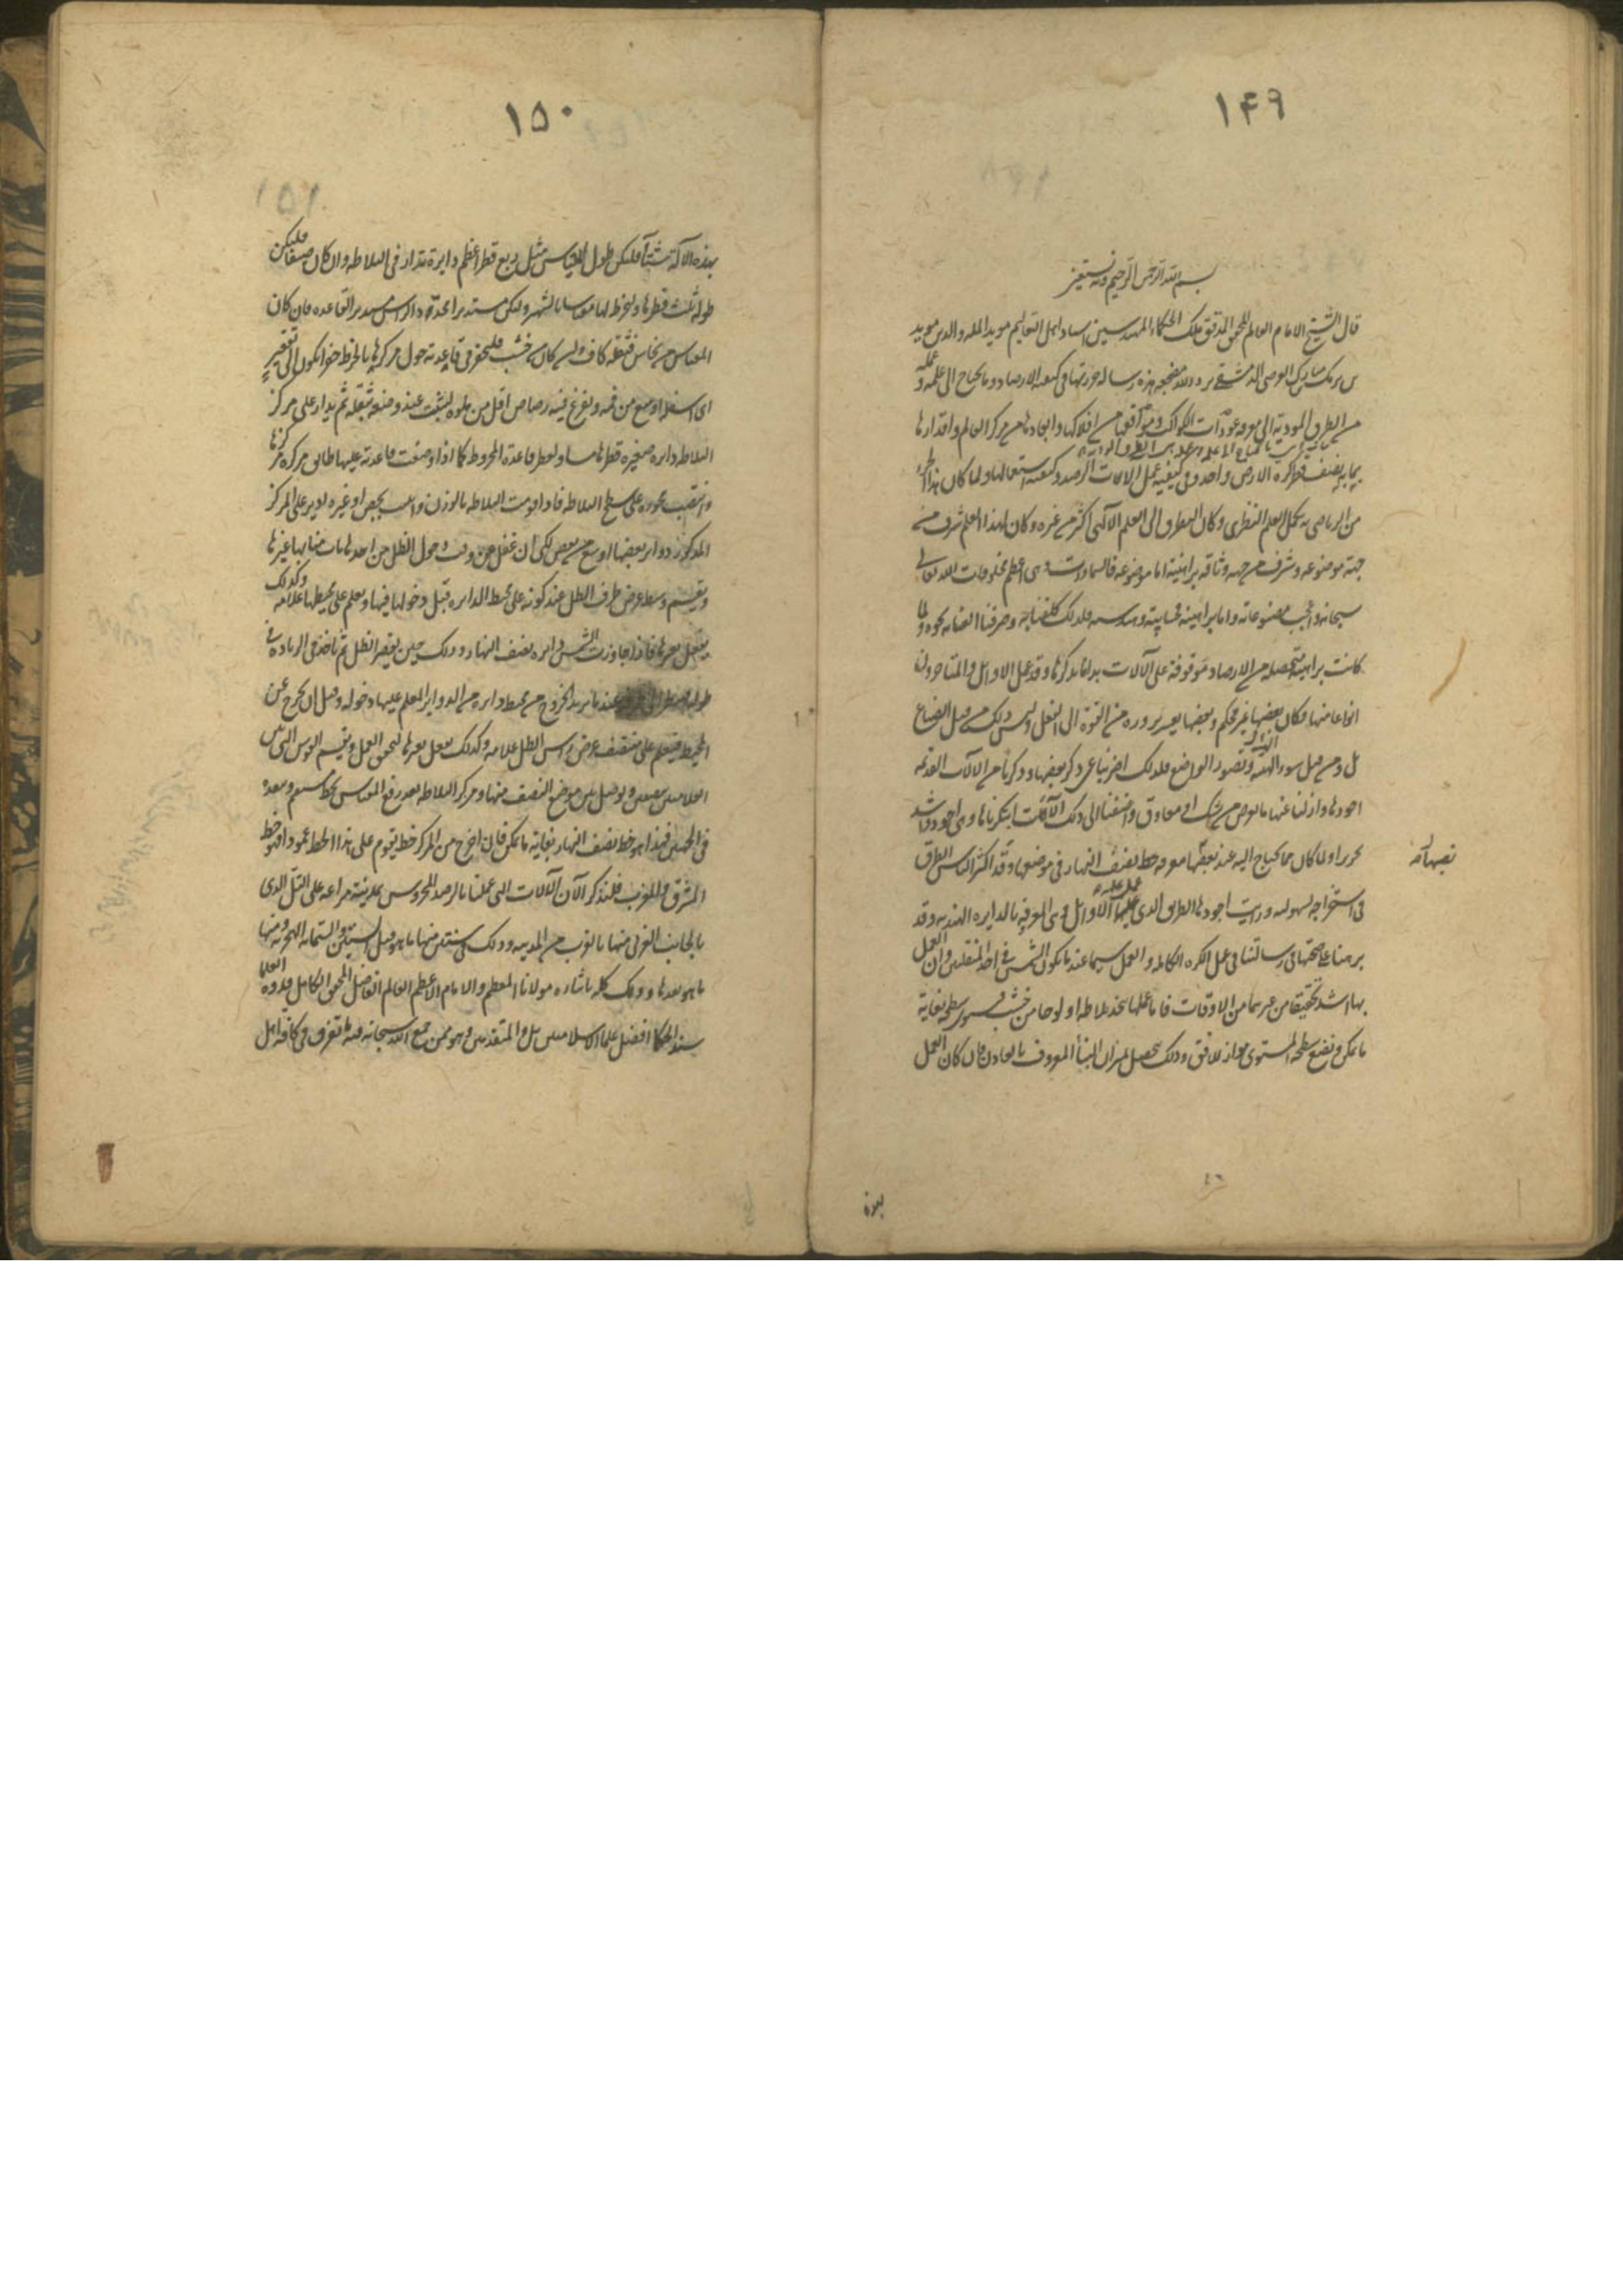 ۱۴۹
بسم الله الرحمن الرحیم وبه نستعین
قال الشیخ الامام العالم المحقق المدقق ملک الحکماء المهندسین استاد اهل التعالیم موید المله والدین موید
بن برمک بن مبارک العرضی الدمشقی برد الله مضجعه هذه رساله حررتها فی کیفیه الارصاد وما یحتاج الی علمه وعمله
من الطرق المودیه الی معرفه عودات الکواکب ومواقعها من افلاکها وابعادها من مرکز العالم واقدارها
بما به نصف قطر کره الارض واحد وفی کیفیه عمل الالات الرصدیه وکیفیه استعمالها ولما کان هذا الجزء
من الریاضی به یکمل العلم النظری وکان المطرق الی العلم الالهی اکثر من غیره وکان لهذا العلم شرف من
جهه موضوعه وشرف من جهه وثاقه براهینه اما موضوعه فالسماوات وهی اعظم مخلوقات الله تعالی
سبحانه واعجب مصنوعاته واما براهینه فحسابیه وهندسیه فلذلک کلفنا به وصرفنا العنایه نحوه ولما
کانت براهینه متحصله من الارصاد موقوفه علی الآلات بدانا بذکرها وقد عمل الاوائل والمتاخرون
انواعا منها فکان بعضها غیر محکم وبعضها یعسر بروزه من القوه الی الفعل ولیس ذلک من قبل الصناع
بل ومن قبل سوء الهیئه وتصور الواضع فلذلک اضربنا عن ذکر بعضها وذکرنا من الالات القدیمه
اجودها وازلنا عنها ما یعرض من شک او معاوق واضفنا الی ذلک الآلات ابتکرناها وهی اجود واشد
تحریرا ولما کان مما یحتاج الیه عند نصبها معرفه خط نصف النهار فی موضعها وقد اکثر الناس الطرق
نصبها
فی استخراجه لسهولته ورایت اجودها الطریق الذی عمل علیه الاوائل وهی المعروفه بالدایره الهندیه وقد
برهنا علی صحتها فی رسالتنا فی عمل الکره الکامله والعمل سیما عند ما یکون الشمس فی احد المنقلبین وان العمل
بها اشد تحقیقا من غیرهما من الاوقات فاما عملها فخذ بلاطه او لوحا من خشب وسوی سطحه بغایه
ما یمکن ونضع سطحه المستوی موازیا للافق وذلک یحصل بمیزان البناء المعروف بالفادن فان کان العمل
بهذه
۱۵۰
بهذه الآله شتآ فلیکن طول المقیاس مثل ربع قطر اعظم دایرة تدار فی البلاطه وان کان صیفا فلیکن
طوله ثلث قطرها ولیخرط لها مقیاسا بالشهر ولیکن مستدیرا محددا الراس مستدیر القاعده فان کان
المقیاس من نحاس فثقله کاف وان کان من خشب فلیحفر فی قاعدته حول مرکزها بالخرط حفرا یکون الی تقعیر
ای اسفله اوسع من فمه ویفرغ فیه رصاص اقل من ملوه لیثبت عند وضعه بثقله ثم یدار علی مرکز
البلاطه دایره صغیره قطرها مساو لقطر قاعدة المخروط کما اذا وضعت قاعدته علیها طابق مرکزه مرکزها
وانتصب محوره علی سطح البلاطه فاذا قومت البلاطه بالوزن واثبتت بجبص او غیره ادیر علی المرکز
المذکور دوایر بعضها اوسع من بعض لکی ان غفل عن وقت دخول الظل من احدها ناب منابها غیرها
ویقسم وسط عرض طرف الظل عند کونه علی محیط الدایره قبل دخولها فیها ویعلم علی محیطها علامه وکذلک
یفعل بغیرها فاذا جاوزت الشمس دایره نصف النهار وذلک حین یقصر الظل ثم یاخذ فی الزیاده فی
طوله عند ما یرید الخروج من محیط دایره من الدوایر المعلم علیها دخوله وقبل ان یخرج عن
المحیط فیعلم علی منتصف عرض راس الظل علامه وکذلک یفعل بغیرها لیحقق العمل ویقسم القوس التی بین
العلامتین بنصفین ویوصل بین موضع النصف منها ومرکز البلاطه بعد رفع المقیاس بخط مستقیم وینفذه
فی الجهتین فهذا هو خط نصف النهار بغایه ما یمکن فان اخرج من المرکز خط یقوم علی هذا الخط عمودا فهو خط
المشرق والمغرب فلنذکر الآن الآلات التی عملنا بالرصد المحروس بمدینة مراغه علی التل الذی
بالجانب الغربی منها بالقرب من المدینه وذلک فی سنتین منها ما هو قبل الستین والستمائه الهجریه ومنها
ما هو بعدها وذلک کله باشاره مولانا المعظم والامام الاعظم العالم الفاضل المحقق الکامل قدوه العلما
سید الحکما افضل علما الاسلامیین بل والمتقدمین وهو ممن جمع الله سبحانه فیه ما تفرق فی کافه اهل